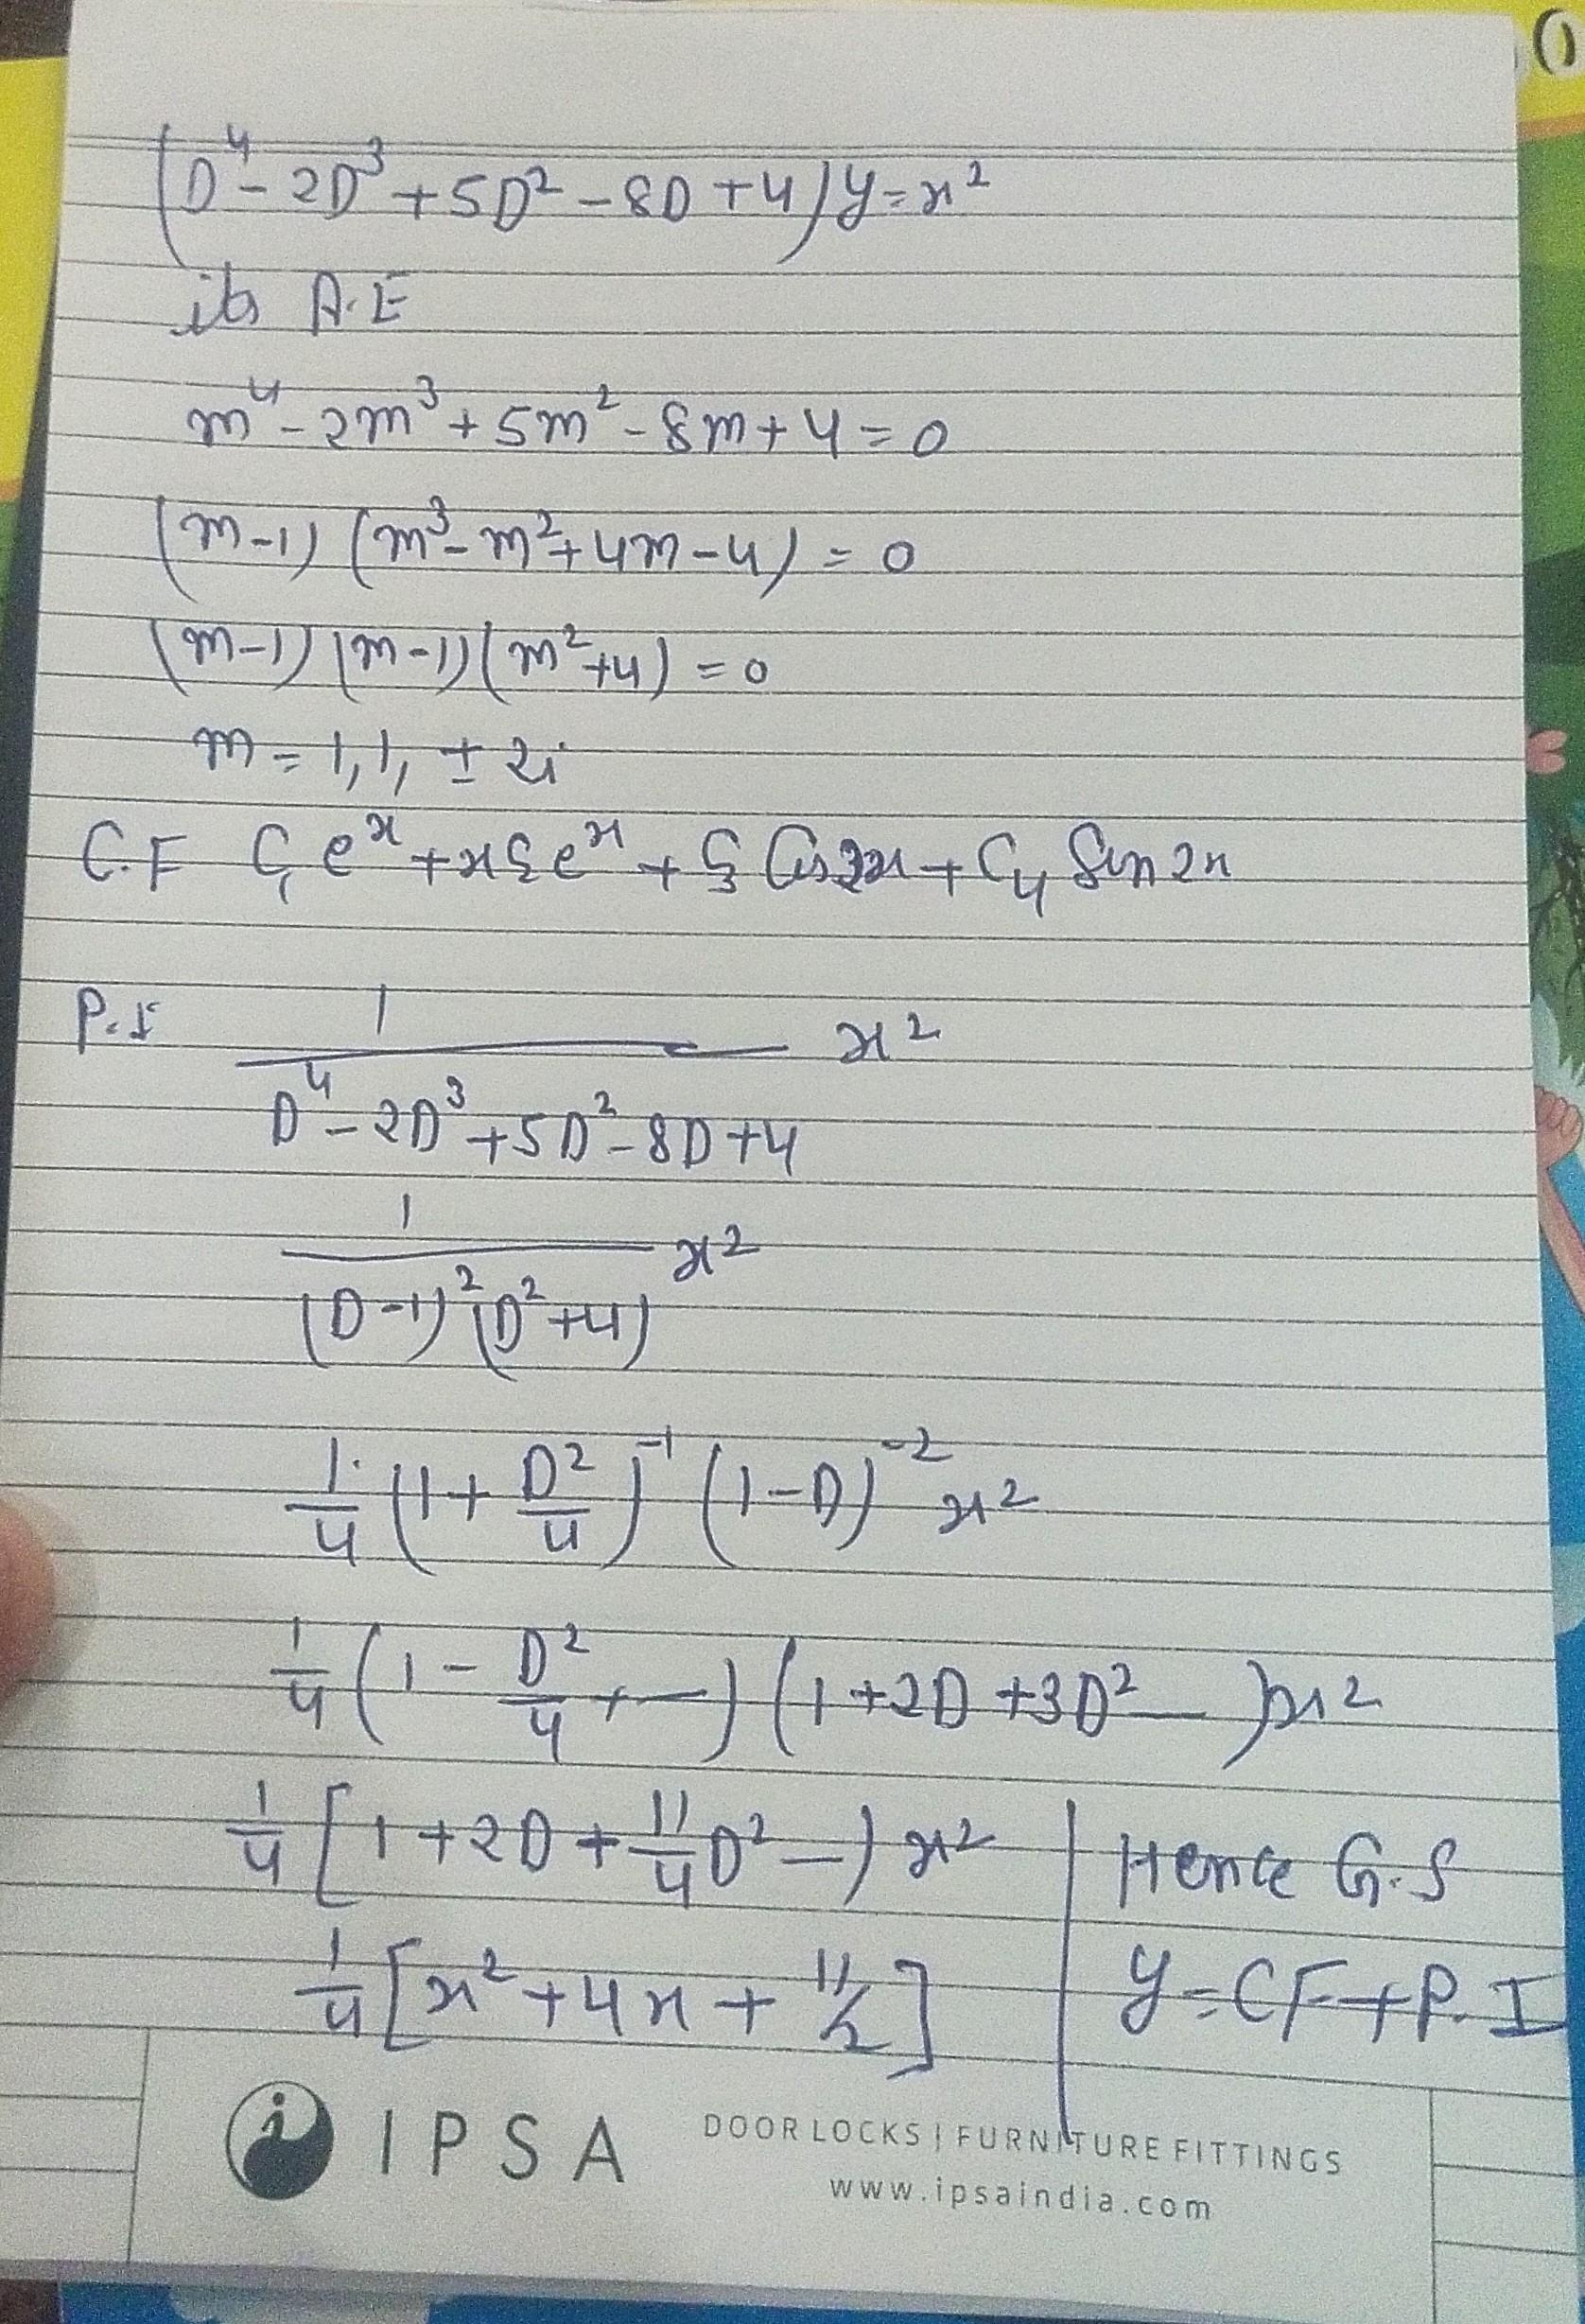 (D⁴ - 2D³ + 5D² - 8D + 4) y = x²
its A.E
m⁴ - 2m³ + 5m² - 8m + 4 = 0
(m-1) (m³ - m² + 4m - 4) = 0
(m-1) (m-1) (m² + 4) = 0
m = 1, 1, ± 2i
C.F C₁ eˣ + x C₂ eˣ + C₃ Cos 2x + C₄ Sin 2x
P.I 1 / (D⁴ - 2D³ + 5D² - 8D + 4) x²
1 / ((D-1)² (D² + 4)) x²
1/4 (1 + D²/4)⁻¹ (1 - D)⁻² x²
1/4 (1 - D²/4 + —) (1 + 2D + 3D² —) x²
1/4 [1 + 2D + 11/4 D² —) x²
1/4 [x² + 4x + 11/2]
Hence G.S
y = CF + P.I
IPSA
DOOR LOCKS | FURNITURE FITTINGS
www.ipsaindia.com